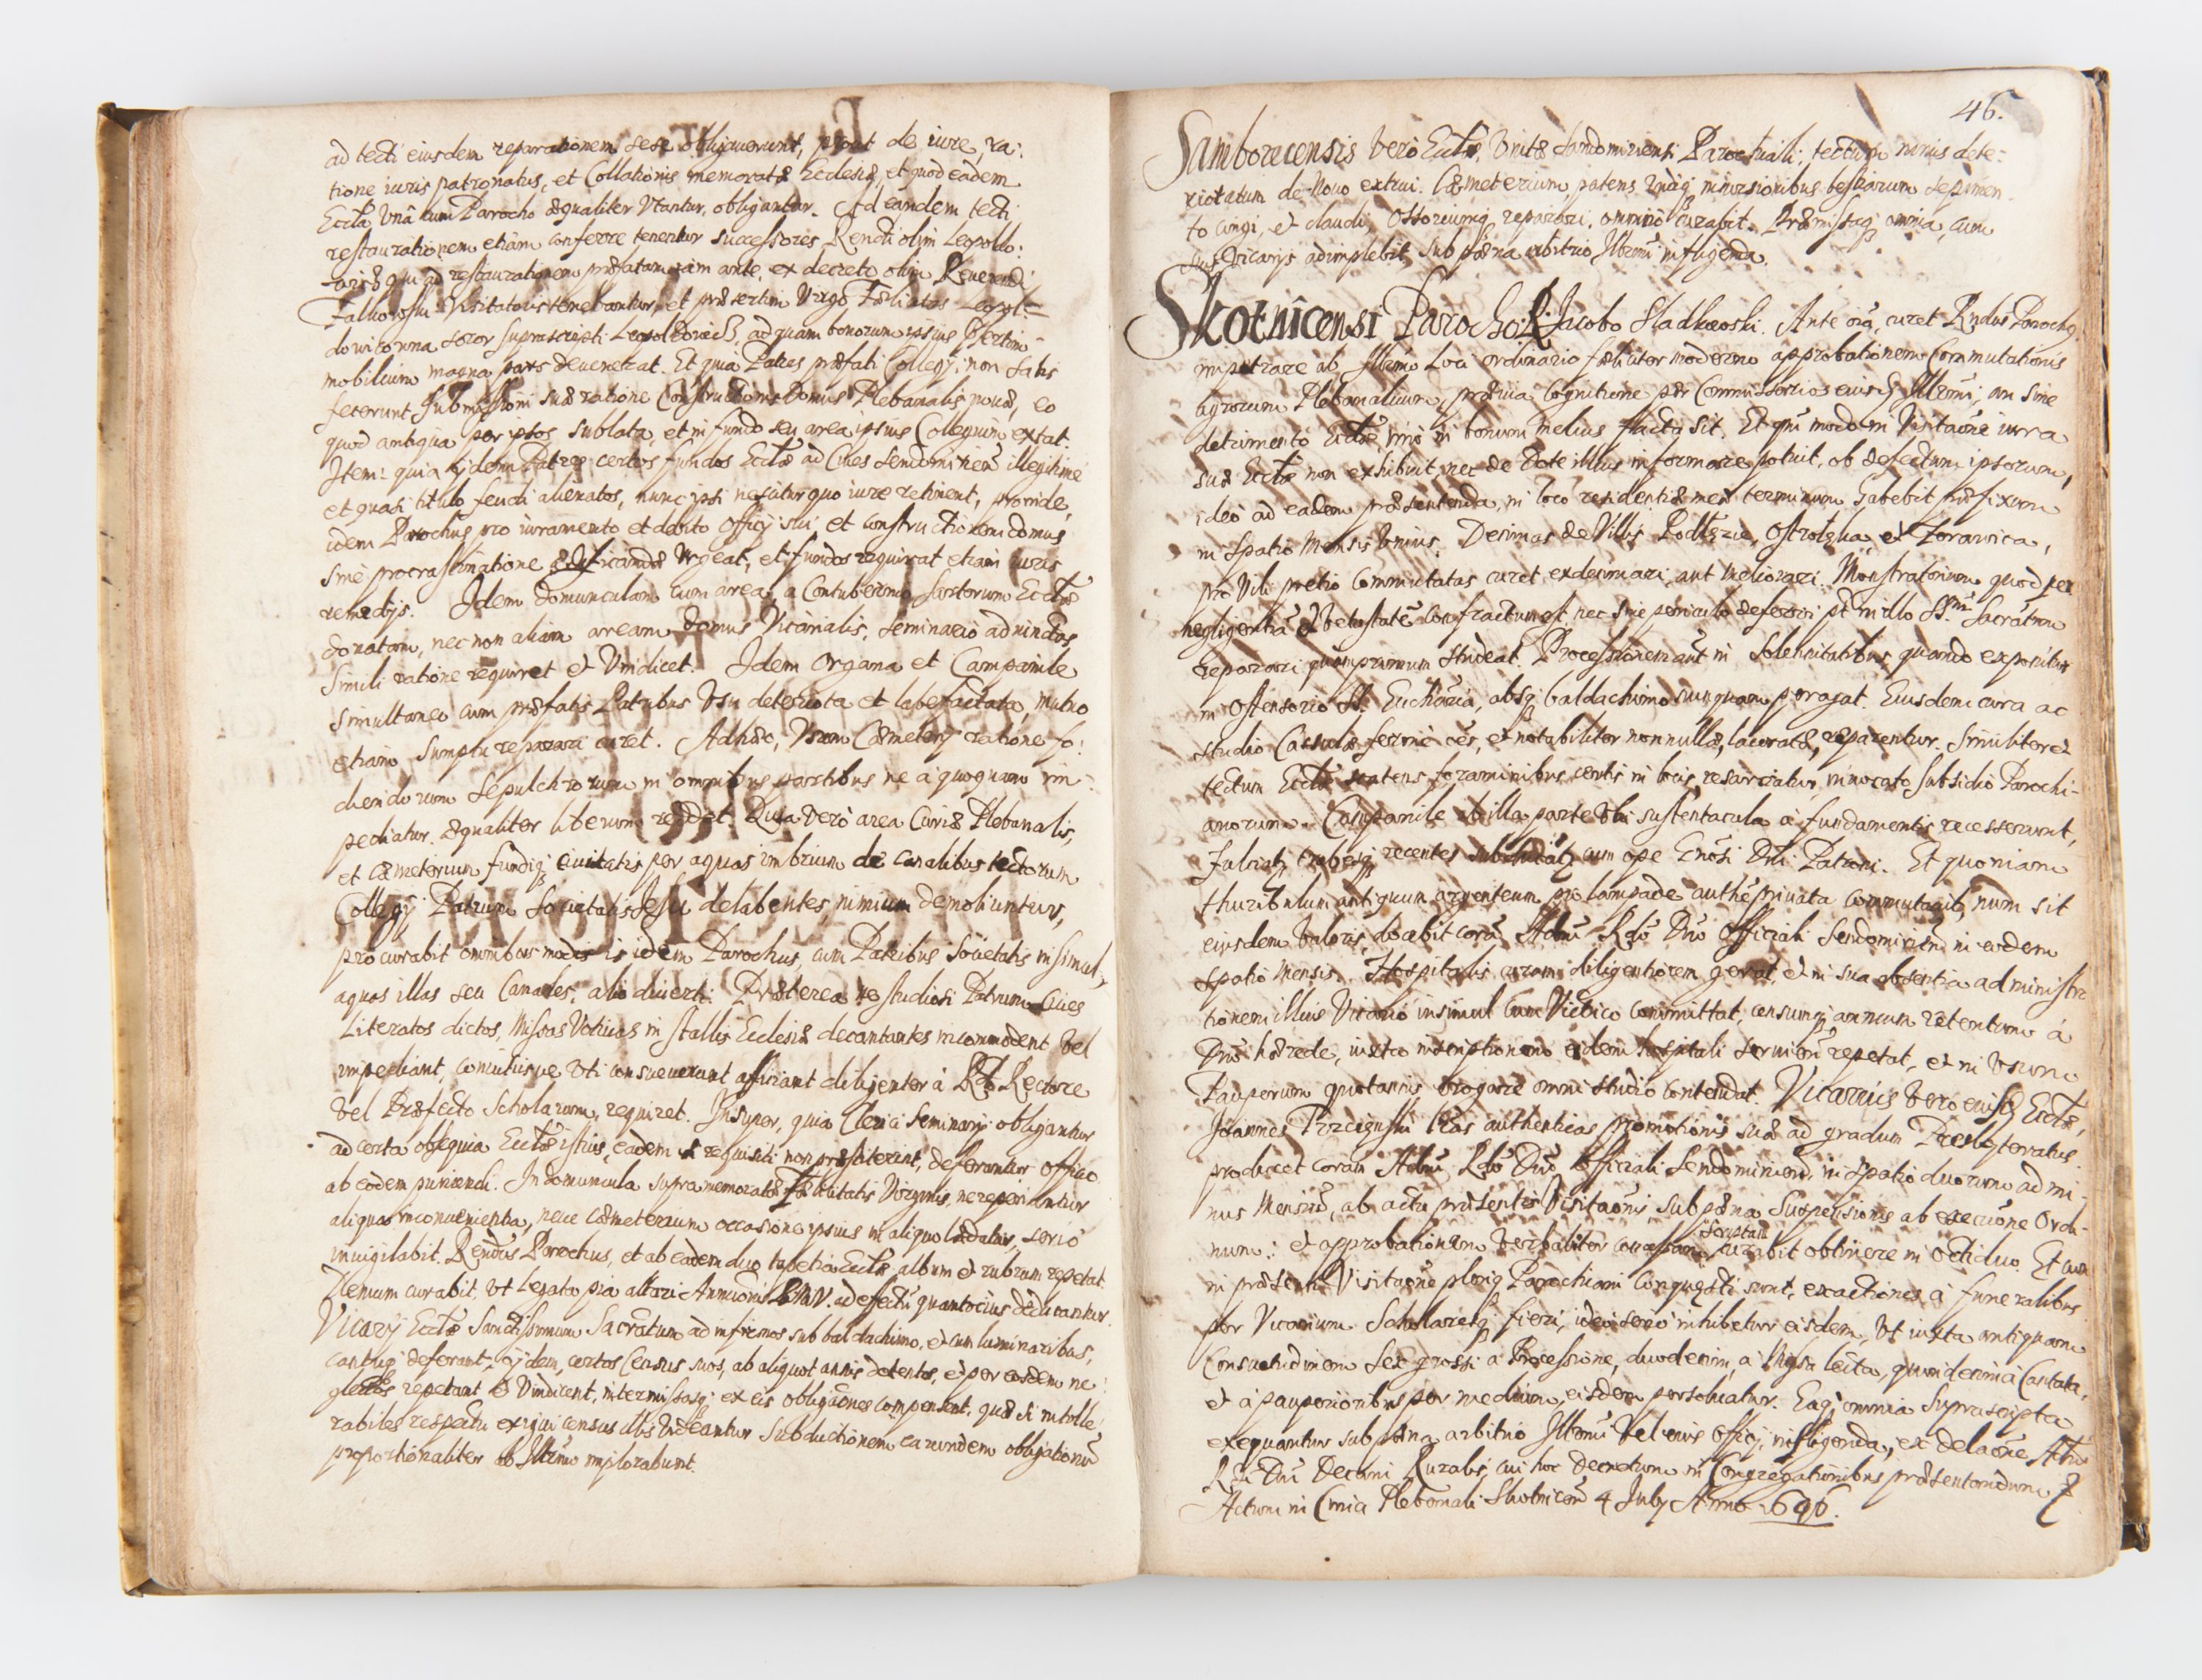 ad tecti eiusdem reparationem sese obligauerunt, prout de iure, ra:
tione iuris patronatus, et Collationis memoratæ Ecclesiæ, et quod eadem
Eccła vnâ cum Parocho æqualiter vtantur, obligantur. Ad eandem tecti
restaurationem etiam conferre tenentur successores Rendi olim Leopoldo:
qui ad restaurationem præfatam iam ante, ex decreto olim Reuerendi
Visitatoris tenebantur, et præsertim Virgo Leopol=
soror suprascripti ad quam bonorum ipsius
mobilium magna pars deuenerat. Et quia Patres præfati Collegij, non satis
fecerunt submissioni suæ ratione Constructionis Domus Plebanalis nouæ, eo
quod antiqua per ipsos sublata, et in fundo seu area ipsius Collegium extat.
Item: quia ijdem Patres certos fundos Ecclæ ad Ciues illegitimè
et quasi titulo feudi alienatos, nunc ipsi nescitur quo iure retinent, proinde,
idem Parochus pro iuramento et debito Officij sui et constructionem domus
sinè procrastinatione ædificandæ vrgeat, et fundos requirat etiam iuris
remedijs. Idem domunculam cum area, a Contubernio Sartorum Ecclæ
donatam, nec non aliam aream domus Vicarialis, seminario
simili ratione requiret et vindicet. Idem Organa et Campanile
simultaneo cum præfatis Patribus vsu deteriora et labefactata, mutuo
etiam sumptu reparari curet. Ad hæc, vsum Cæmeterij ratione fo:
diendorum sepulchrorum in omnibus partibus ne a quoquam im=
pediatur æqualiter liberum reddat. Quia verò area Curiæ Plebanalis,
et cæmeterium fundiq ciuitatis per aquas imbrium de Canalibus tectorum
Collegij Patrum Societatis Jesu delabentes, nimium demoliuntur,
procurabit omnibus modis is idem Parochus, cum Patribus Societatis insimul,
aquas illas seu Canales, alio diuerti. Præterea ne studiosi Patrum Ciues
Literatos dictos, Missas Votiuas in stallis Ecclesiæ decantantes incommodent vel
impediant, conuitijsue vti consueuerunt afficiant diligenter à Rdo Rectore
vel Præfecto Scholarum, requiret. Insuper, quia Clerici Seminarij obligantur
ad certa obsequia Ecclæ istius, eadem si requisiti non præstiterint, deferantur Officio
ab eodem puniendi. In domuncula supra memoratæ Virginis, ne reperiantur
aliqua inconuenientia, neue cæmeterium occasione ipsius in aliquo lædatur, serio
inuigilabit. Rendus Parochus, et ab eadem duo Ecclæ album et rubrum repetat.
Demum curabit, vt legata pia altari Annuõnis BMV. ad effectũ quantocius deducantur.
Vicarij Ecclæ Sanctissimum Sacrãtum ad infirmos sub baldachimo, et cum luminaribus,
cantuq deferant, ijdem, certos Census suos, ab aliquot annis detentos, et per eosdem ne:
glectos repetant et vindicent, intermissasq ex eis obligãones compensent, quæ si intolle:
rabiles respectu exigui census illis videantur subductionem earundem obligationũ
proportionaliter ab Illmo implorabunt.
46.
Samborecensis verò Ecclæ, vnitæ Sandomiriensi Parochiali, tectum nimis dete:
rioratum de Nouo extrui. Cæmeterium patens vndiq, incursionibus bestiarum sepimen:
to cingi, et claudi, Ossoriumq reparari, omninò curabit. Præmissaq omnia, cum
suis Vicarijs adimplebit, sub pæna arbitrio Illmi infligenda.
Skotnicensi Parocho: R. Jacobo Sladkowski. Ante oĩa, curet Rndus Parochus
impetrare ab Illmo Loci Ordinario fæliciter moderno approbationem Commutationis
agrorum Plebanalium, præuia Cognitione per Commissarios eius Illmi, an sine
detrimento Ecclæ, imò in bonum melius facta sit. Et quia modo in Visitaõne iura
suæ Ecclæ non exhibuit, nec de Dote illius informare potuit, ob defectum ipsorum,
ideò ad eadem præsentenda, in loco residentiæ meæ terminum habebit præfixum
in spatio Mensis vnius. Decimas de Villis Podłęzie, Ostrołęka, et Zorawica,
pro vili pretio commutatas curet exdecimari, aut meliorari. Monstratorium quod per
negligentiã et vetustatẽ confractum est, nec sine periculo deferri pt in illo SSmũ Sacrãtum
reparari quamprimum studeat. Processionem aut in Solennitatibus, quando exponitur
in Ostensorio SS. Eucharia, absq baldachimo nunquam peragat. Eiusdem cura ac
studio Casulæ fermè oẽs, et notabiliter nonnullæ, laceratæ, reparentur. Similiter et
tectum Ecclæ scatens foraminibus certis in locis, resarciatur, inuocato subsidio Parochi=
anorum. Campanile ab illa parte vbi sustentacula à fundamentis recesserunt,
fulciat, trabesq recentes cum ope Gnõsi Dni Patroni. Et quoniam
thuribulum antiquum argenteum pro lampade authẽ priuata commutauit, num sit
eiusdem valoris, docebit corã Admũ Rdo Dno Officiali Sendomirien in eodem
spatio Mensis. Hospitalis curam diligentiorem gerat, et in sua absentia administra
tionem illius Vicario insimul cum Vietrico committat, censumq annuum retentum à
Dno hærede, iuxta inscriptionem eidem hospitali repetat, et in vsum
Pauperum quotannis erogare omni studio contendat. Vicarius vero eiusdem Ecclæ,
Joannes litteras authenticas promotionis suæ ad gradum Presbyteratus
producet coram Admũ Rdo Dno Officiali Sendomirien, in spatio duorum ad mi:
nus Mensiũ, ab actu præsentis Visitaõnis, sub pæna Suspensionis ab executione Ordi=
num: et approbationem verbaliter concessam, scriptam curabit obtinere in octiduo. Et cum
in præsenti Visitaõne pleriq Parochiani conquesti sunt, exactiones à funeralibus
per Vicarium Scholaresq fieri, ideò seriò inhibetur eisdem, vt iuxta antiquam
Consuetudinem sex grossi a Processione, duodecim, a Missa lecta, quindecim à Cantata,
et à pauperioribus per medium, eisdem persoluatur. Eaq omnia suprascripta
exequantur sub pæna arbitrio Illmi vel eius Officij, infligenda, ex delaõne Admũ
Rdi Dni Decani Ruralis, cui hoc decretum in Congregationibus præsentandum
Actum in Curia Plebanali Skotnicen 4 July Anno 1696.